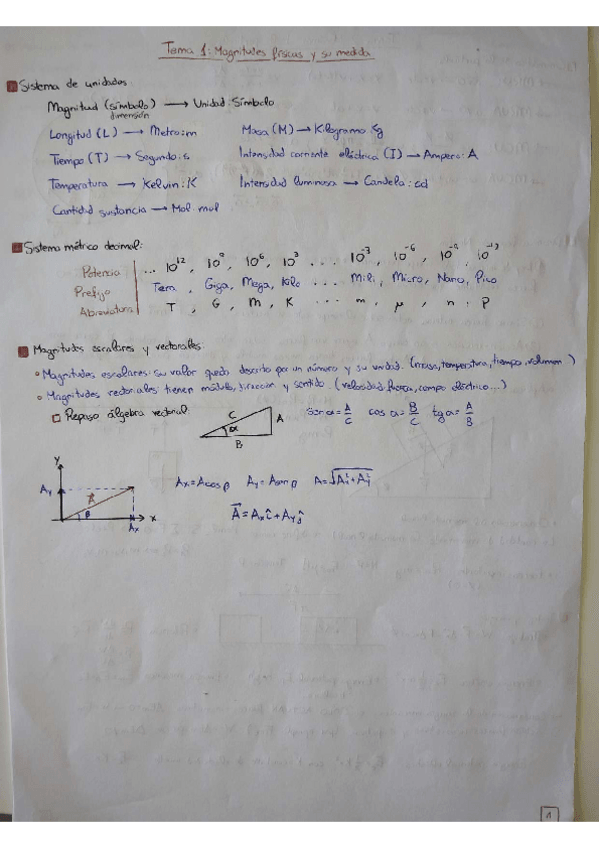 Tema 1: Magnitudes físicas y su medida
Sistema de unidades:
Magnitud (símbolo) → Unidad: Símbolo
dimensión
Longitud (L) → Metro: m    Masa (M) → Kilogramo: Kg
Tiempo (T) → Segundo: s    Intensidad corriente eléctrica (I) → Ampere: A
Temperatura → Kelvin: K    Intensidad luminosa → Candela: cd
Cantidad sustancia → Mol: mol
Sistema métrico decimal:
Potencia ... 10¹², 10⁹, 10⁶, 10³ ... 10⁻³, 10⁻⁶, 10⁻⁹, 10⁻¹²
Prefijo Tera, Giga, Mega, Kilo ... Mili, Micro, Nano, Pico
Abreviatura T, G, M, K ... m, μ, n, p
Magnitudes escalares y vectoriales:
Magnitudes escalares: su valor queda descrito por un número y su unidad. (masa, temperatura, tiempo, volumen)
Magnitudes vectoriales: tienen módulo, dirección y sentido (velocidad, fuerza, campo eléctrico...)
Repaso álgebra vectorial: C α A B sen α = A/C cos α = B/C tg α = A/B
y Ay A β Ax x
Ax = A cos β Ay = A sen β A = √(Ax² + Ay²)
A⃗ = Ax î + Ay ĵ
1